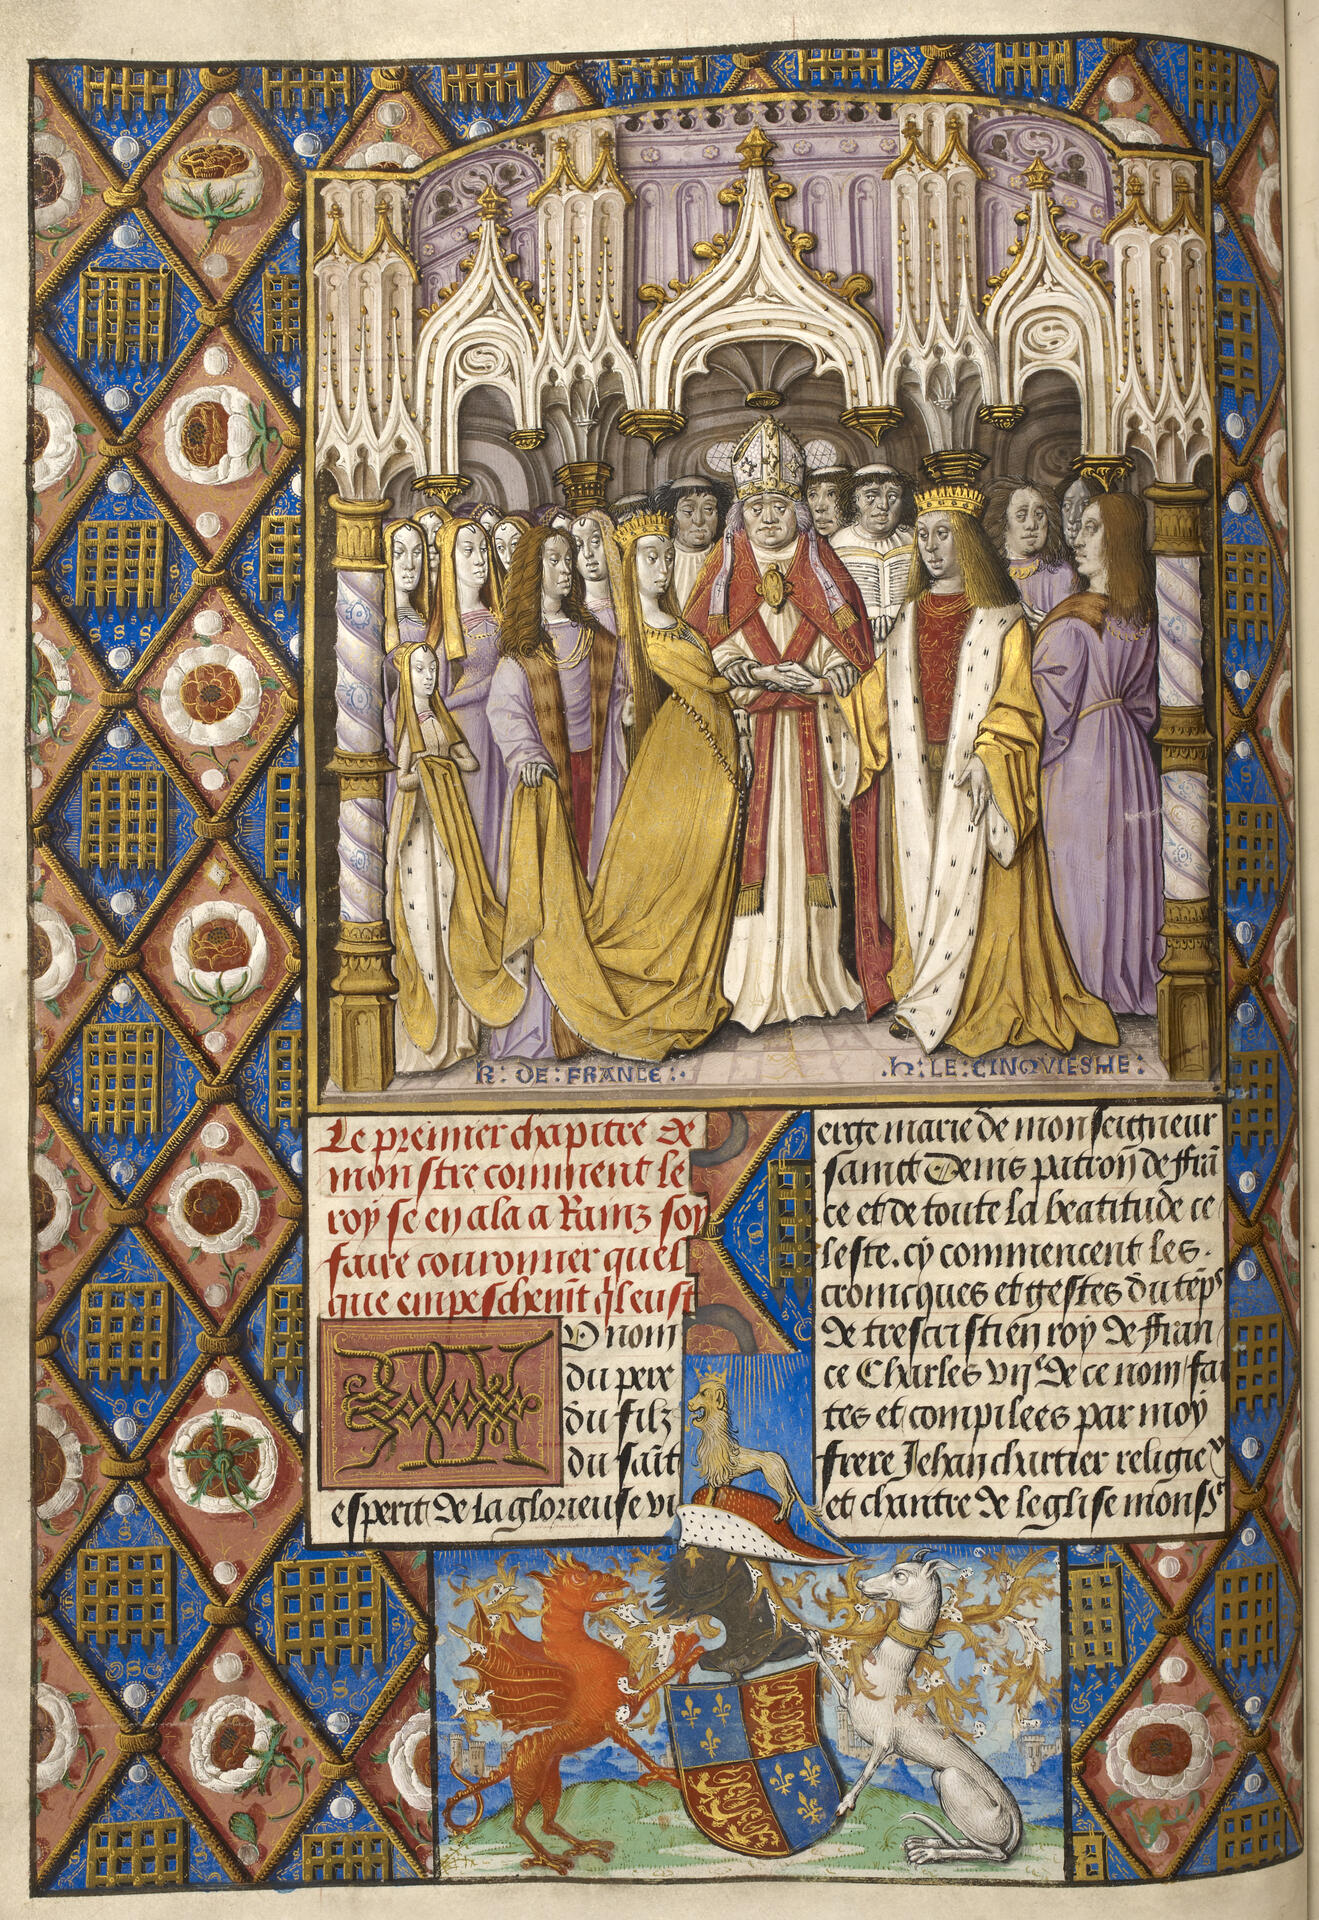 K · DE : FRANCE :·
·h : LE : CINQVIESME :
Le premier chapitre de
monstre comment le
roy se en ala a Rainz soy
faire couronner quel
que empeschemt qleust
U nom
du pere
du filz
du saīt
esperit de la glorieuse vi
erge marie de monseigneur
sainct Denis patron de ffrā
ce et de toute la beatitude ce
leste. cy commencent les.
cronicques et gestes du tēps
de trescristien roy de ffran
ce Charles vije de ce nom fai
tes et compilees par moy
frere Jehan chartier religieux
et chantre de leglise monsr